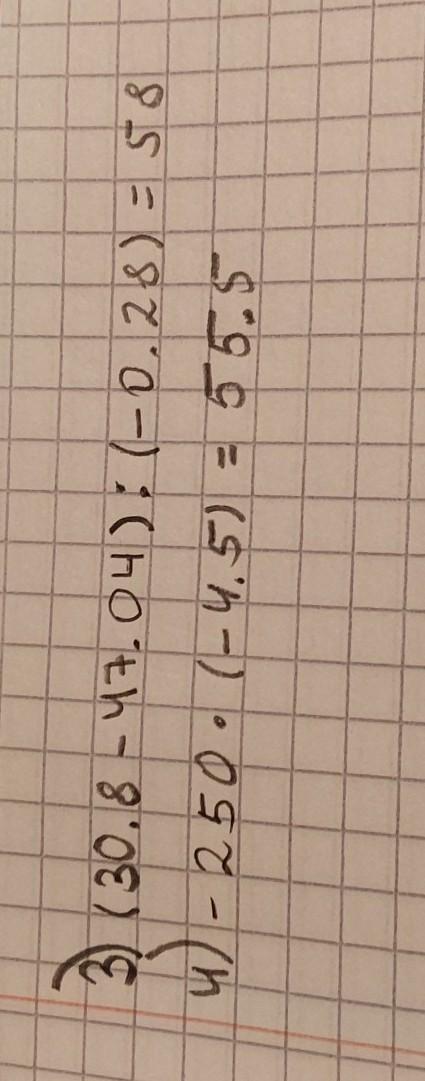 3) (30.8 - 47.04) : (-0.28) = 58
4) - 250 · (-4.5) = 55.5